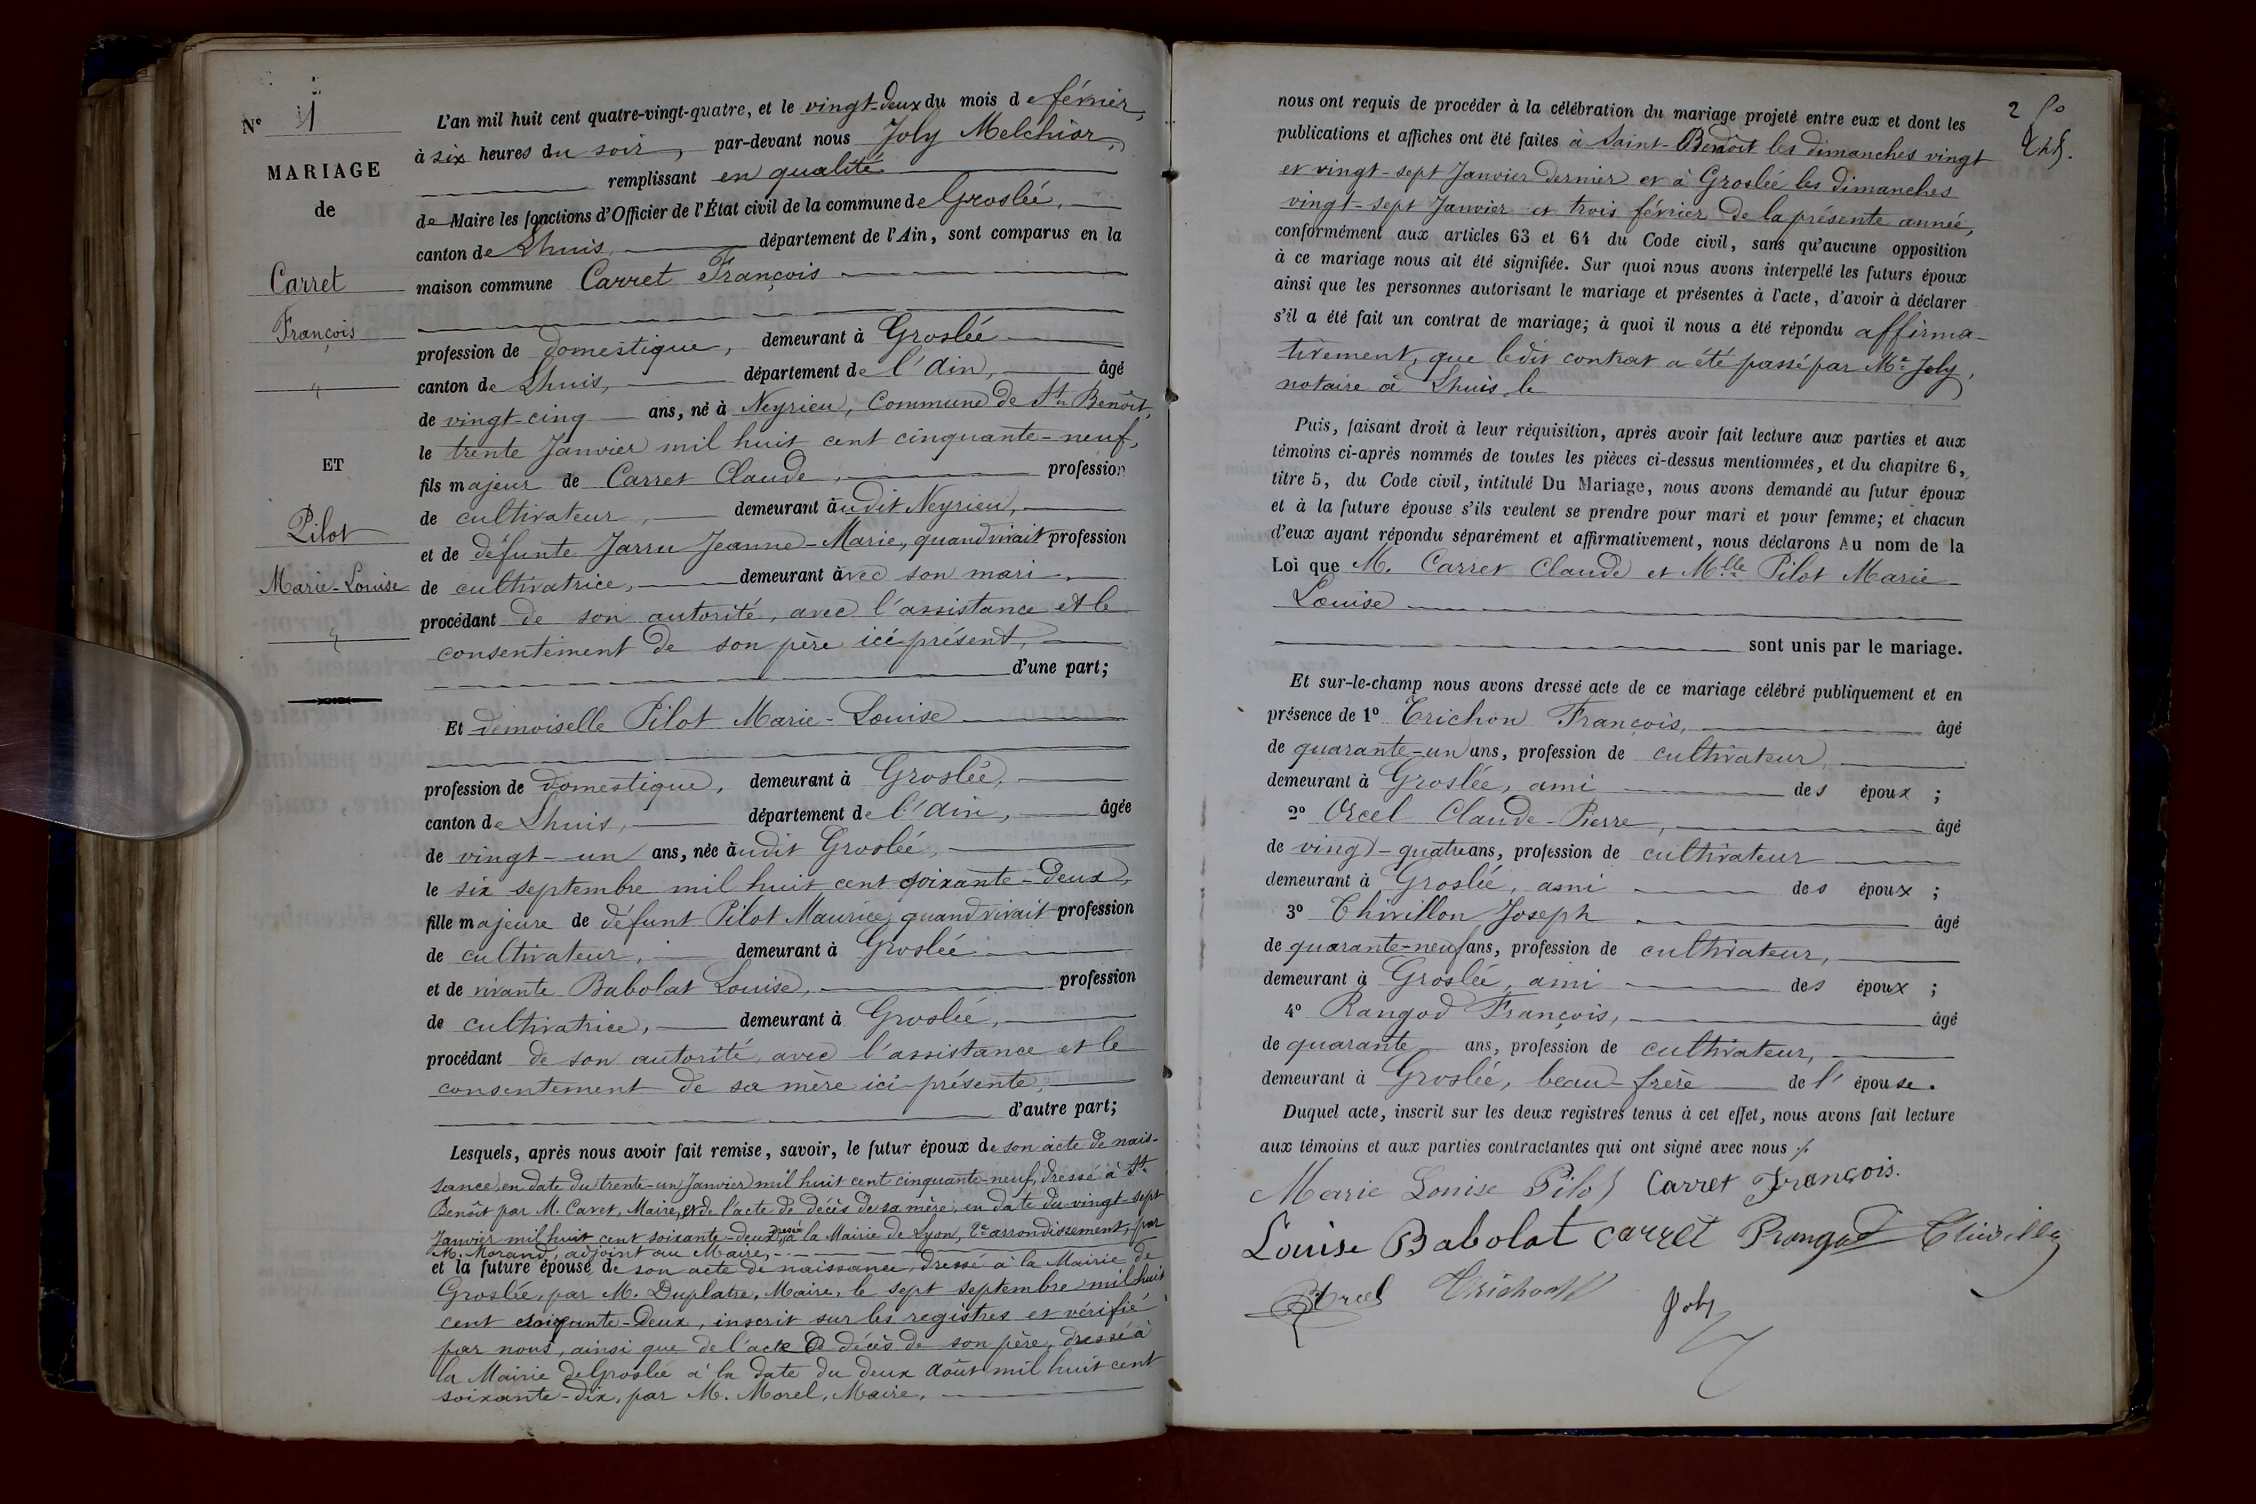 N° 1
MARIAGE
de
Carret
François
ET
Pilot
Marie-Louise
L'an mil huit cent quatre-vingt-quatre, et le vingt-deux du mois de février,
à six heures du soir, par-devant nous Joly Melchior,
remplissant en qualité
de Maire les fonctions d'Officier de l'État civil de la commune de Groslée,
canton de Lhuis, département de l'Ain, sont comparus en la
maison commune Carret François
profession de domestique, demeurant à Groslée
canton de Lhuis, département de l'Ain, âgé
de vingt-cinq ans, né à Neyrieu, Commune de St Benoît,
le trente Janvier mil huit cent cinquante-neuf,
fils majeur de Carret Claude, profession
de cultivateur, demeurant audit Neyrieu,
et de défunte Jarru Jeanne-Marie, quand vivait profession
de cultivatrice, demeurant avec son mari,
procédant de son autorité, avec l'assistance et le
consentement de son père ici présent,
d'une part;
Et demoiselle Pilot Marie-Louise
profession de domestique, demeurant à Groslée,
canton de Lhuis, département de l'Ain, âgée
de vingt-un ans, née audit Groslée,
le six septembre mil huit cent soixante-deux,
fille majeure de défunt Pilot Maurice, quand vivait profession
de cultivateur, demeurant à Groslée
et de vivante Babolat Louise, profession
de cultivatrice, demeurant à Groslée,
procédant de son autorité, avec l'assistance et le
consentement de sa mère ici-présente,
d'autre part;
Lesquels, après nous avoir fait remise, savoir, le futur époux de son acte de nais-
sance, en date du trente-un Janvier mil huit cent cinquante-neuf, dressé à St
Benoît par M. Cavet, Maire, et de l'acte de décès de sa mère, en date du vingt-sept
Janvier mil huit cent soixante-deux, dressé à la Mairie de Lyon, 2e arrondissement, par
M. Morand, adjoint au Maire,
et la future épouse de son acte de naissance, dressé à la Mairie de
Groslée, par M. Duplatre, Maire, le sept septembre mil huit
cent soixante-deux, inscrit sur les registres et vérifié
par nous, ainsi que de l'acte de décès de son père, dressé à
la Mairie de Groslée à la date du deux Août mil huit cent
soixante-dix, par M. Morel, Maire,
2
nous ont requis de procéder à la célébration du mariage projeté entre eux et dont les
publications et affiches ont été faites à Saint-Benoît les dimanches vingt
et vingt-sept Janvier dernier et à Groslée les dimanches
vingt-sept Janvier et trois février de la présente année,
conformément aux articles 63 et 64 du Code civil, sans qu'aucune opposition
à ce mariage nous ait été signifiée. Sur quoi nous avons interpellé les futurs époux
ainsi que les personnes autorisant le mariage et présentes à l'acte, d'avoir à déclarer
s'il a été fait un contrat de mariage; à quoi il nous a été répondu affirma-
tivement, que ledit contrat a été passé par Me Joly,
notaire à Lhuis, le
Puis, faisant droit à leur réquisition, après avoir fait lecture aux parties et aux
témoins ci-après nommés de toutes les pièces ci-dessus mentionnées, et du chapitre 6,
titre 5, du Code civil, intitulé Du Mariage, nous avons demandé au futur époux
et à la future épouse s'ils veulent se prendre pour mari et pour femme; et chacun
d'eux ayant répondu séparément et affirmativement, nous déclarons Au nom de la
Loi que M. Carret Claude et Mlle Pilot Marie
Louise
sont unis par le mariage.
Et sur-le-champ nous avons dressé acte de ce mariage célébré publiquement et en
présence de 1° Trichon François, âgé
de quarante-un ans, profession de cultivateur,
demeurant à Groslée, ami des époux ;
2° Orcel Claude-Pierre, âgé
de vingt-quatre ans, profession de cultivateur
demeurant à Groslée, ami des époux ;
3° Thivillon Joseph âgé
de quarante-neuf ans, profession de cultivateur,
demeurant à Groslée, ami des époux ;
4° Rangod François, âgé
de quarante ans, profession de cultivateur,
demeurant à Groslée, beau-frère de l'épouse.
Duquel acte, inscrit sur les deux registres tenus à cet effet, nous avons fait lecture
aux témoins et aux parties contractantes qui ont signé avec nous
Marie Louise Pilot Carret François.
Louise Babolat Carret Rangod Thivillon
Orcel Trichon
Joly